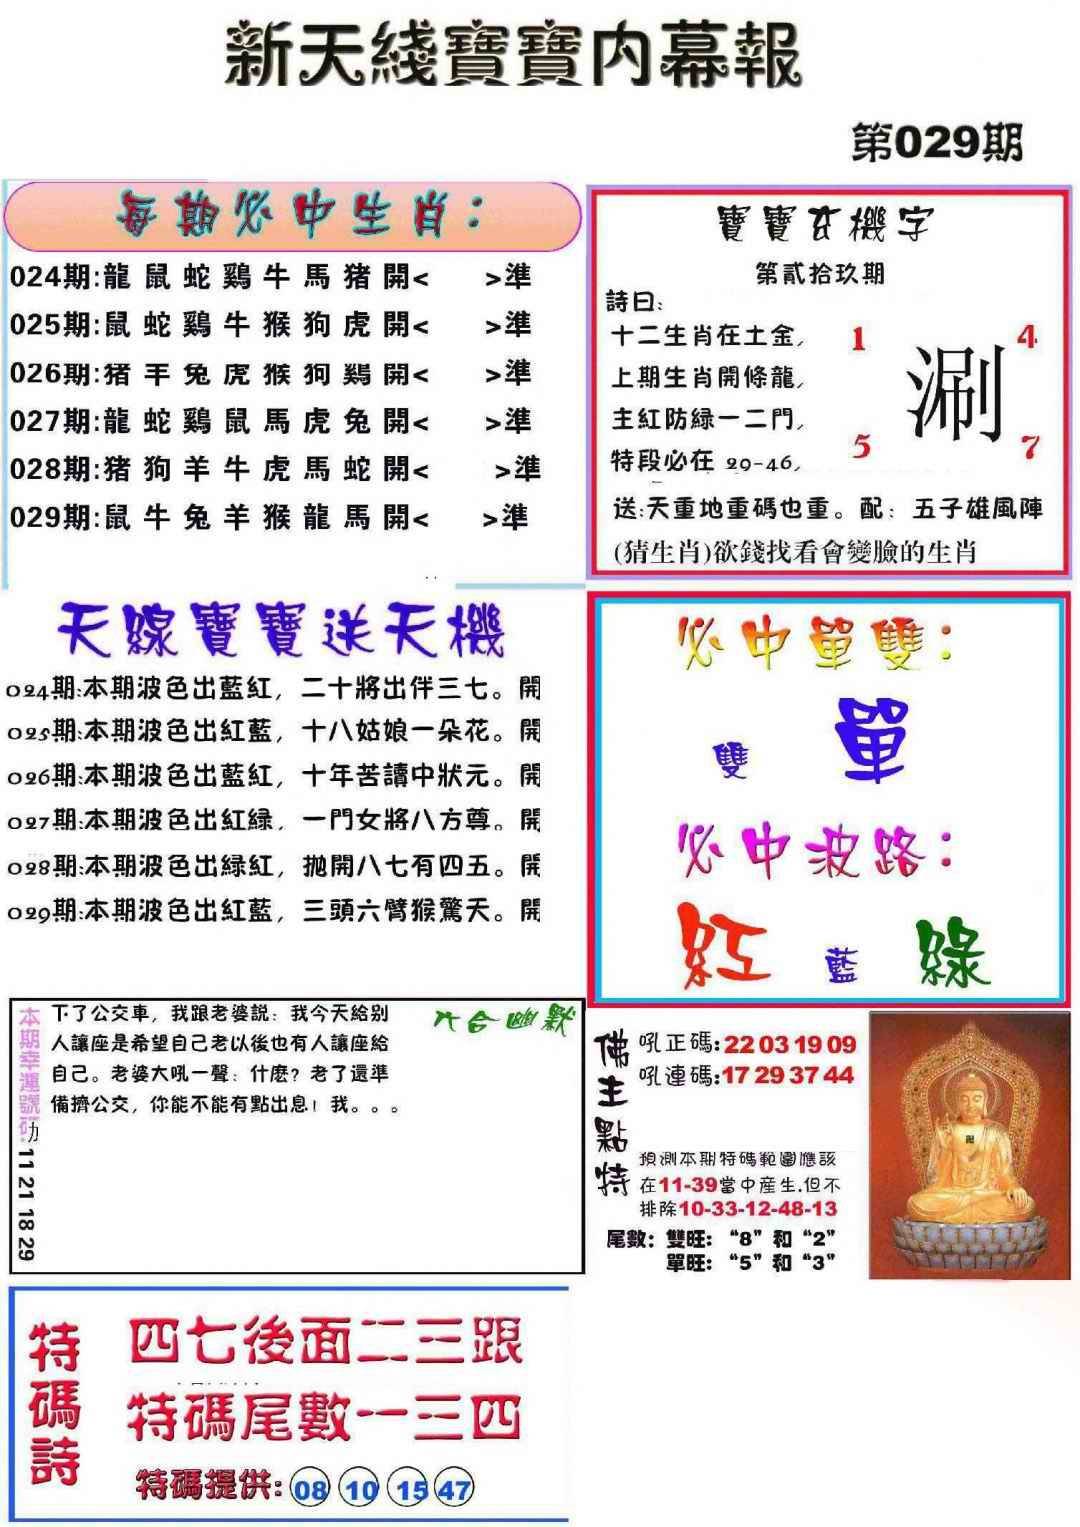 新天綫寶寶内幕報
第029期
每期必中生肖：
024期:龍鼠蛇鷄牛馬猪開< >準
025期:鼠蛇鷄牛猴狗虎開< >準
026期:猪羊兔虎猴狗鷄開< >準
027期:龍蛇鷄鼠馬虎兔開< >準
028期:猪狗羊牛虎馬蛇開< >準
029期:鼠牛兔羊猴龍馬開< >準
寶寶玄機字
第貳拾玖期
詩曰:
十二生肖在土金,
上期生肖開條龍,
主紅防緑一二門,
特段必在 29-46,
1 4
涮
5 7
送:天重地重碼也重。配：五子雄風陣
(猜生肖)欲錢找看會變臉的生肖
天線寶寶送天機
024期:本期波色出藍紅，二十將出伴三七。開
025期:本期波色出紅藍，十八姑娘一朵花。開
026期:本期波色出藍紅，十年苦讀中狀元。開
027期:本期波色出紅緑，一門女將八方尊。開
028期:本期波色出緑紅，抛開八七有四五。開
029期:本期波色出紅藍，三頭六臂猴驚天。開
必中單雙：
雙 單
必中波路：
紅 藍 綠
本期幸運號碼:
11 21 18 29
六合幽默
下了公交車，我跟老婆説：我今天給别
人讓座是希望自己老以後也有人讓座給
自己。老婆大吼一聲：什麽？老了還準
備擠公交，你能不能有點出息！我。。。
佛主點特
吼正碼:22 03 19 09
吼連碼:17 29 37 44
預測本期特碼範圍應該
在11-39當中産生.但不
排除10-33-12-48-13
尾數：雙旺：“8”和“2”
單旺：“5”和“3”
特碼詩
四七後面二三跟
特碼尾數一三四
特碼提供: 08 10 15 47